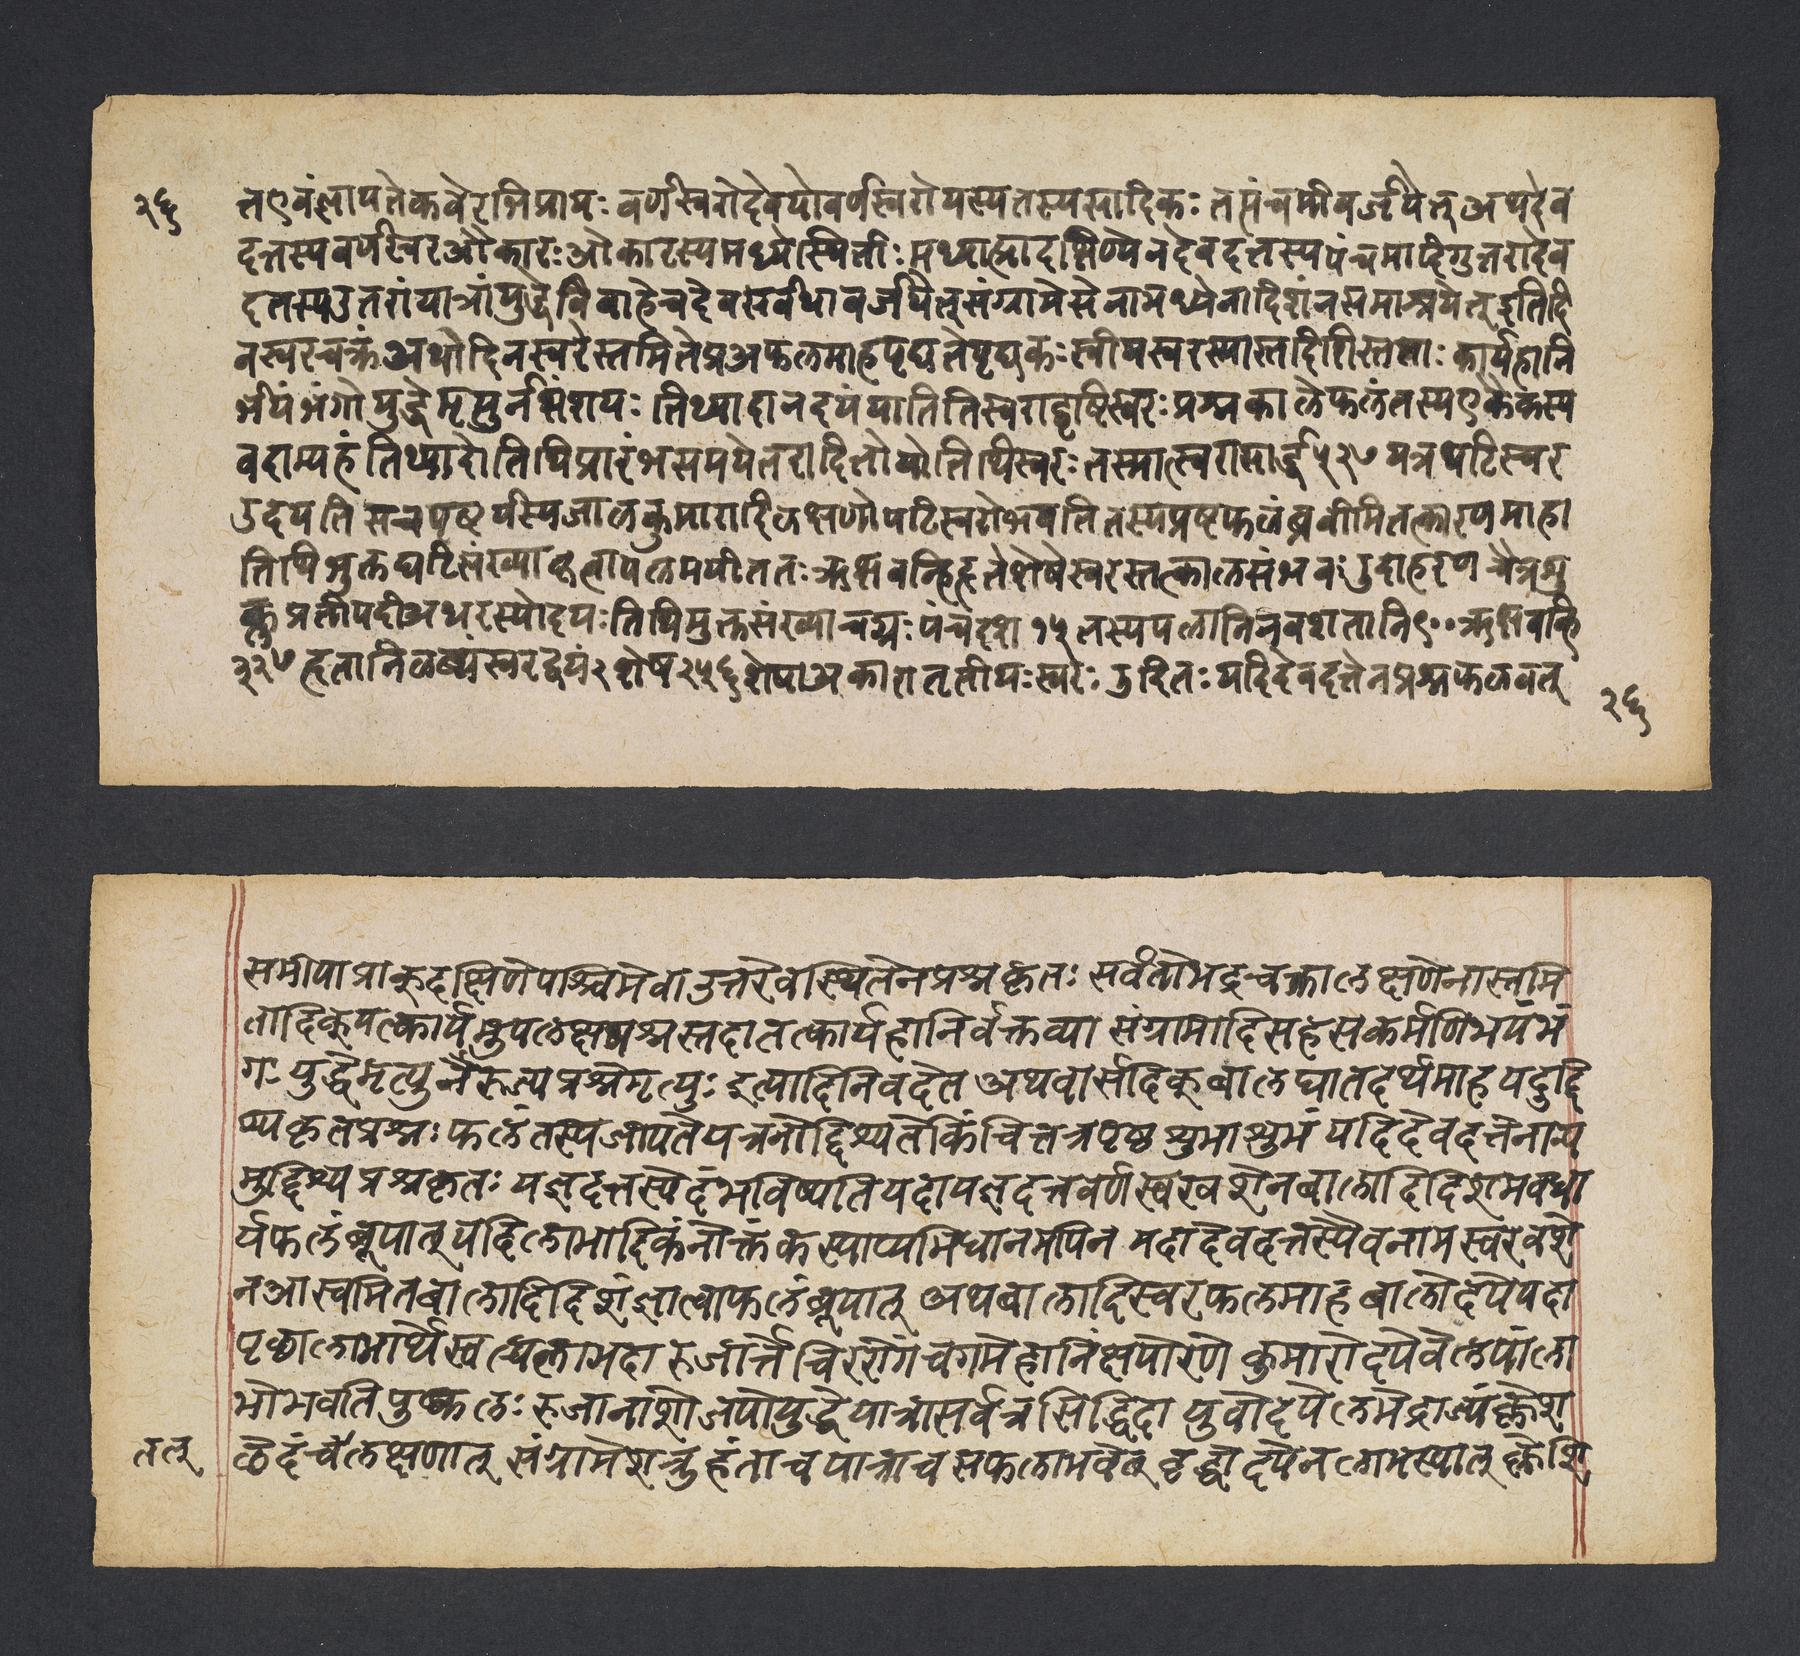 २६
त एवं ज्ञापते कवेरभिप्रायः वर्णस्वरोदेवयोवर्णस्वरोयस्यतस्यसादिकः तसंचमीवर्जयेत् अथदेव
दत्तस्यवर्णस्वरओकारः ओकारस्यमध्येस्थिती मध्याह्नादक्षिणेपनदेवदत्तस्यपंचमादिगुत्तरादेव
दत्तस्यउत्तरांयात्रांयुद्धेविवाहेचदेवसर्वथावर्जयेत् संग्रामेसेनामध्येनादिशंनसमाश्रयेत् इतिदि
नस्वरचक्रं अथोदिनस्वरेस्तमितेप्रश्नफलमाहपृच्छतेपृच्छकः स्वीयस्वरस्यास्तदिशिस्तताः कार्यहानि
भयंभंगोयुद्धेमृत्युर्नसंशयः तिथ्यादानदयंयातितिस्वराद्दृष्टिस्वरः प्रश्नकालेफलंतस्यएकैकस्य
वदाम्यहं तिथ्यादौतिथिप्रारंभसमयेतरादितोयोतिथिस्वरः तस्मात्स्वरामार्द्ध ५२७ यत्रघटिस्वर
उदयति सचपृष्टर्यस्यजालकुमारादिलक्षणोघटिस्वरोभवतितस्यप्रष्टफलंब्रवीमितत्कारणमाहा
तिथिभुक्तघटिसंख्याकृत्वापलमयीततः ऋक्षवन्हिहृतेशेषेस्वरस्तत्कालसंभवः उदाहरण चैत्रशु
क्लप्रतीपदीअथरस्योदयः तिथिभुक्तसंख्याचद्यः पंचदश १५ तस्यपलानिनवशतानि९०० ऋक्षवन्हि
३२७ हृतानिलब्धंस्वरद्वयं२ शेष २५६ शेषाअकारात्तृतीयः स्वरः उदितः यदिदेवदत्तेनप्रश्नफलवत्
२६
समीपाप्राक्दक्षिणेपश्चिमेवाउत्तरेवास्थितेनप्रश्नकृतः सर्वतोभद्रचक्रालक्षणेनास्तमि
तादिकूपत्कार्यमुपलक्षप्रश्नस्तदातत्कार्यहानिर्वक्तव्या संग्रामादिसहसकर्मणिभयंभं
गः युद्धेमृत्युर्नैरुज्यप्रश्नेमृत्युः इत्यादिनिवदेत् अथवार्सदिक्बालघातदर्थमाह यदुद्दि
श्यकृतप्रश्नः फलंतस्यजायतेयन्ननोद्दिश्यतेकिंचित्तत्रपृष्ठशुभाशुभं यदिदेवदत्तेनान्य
मुद्दिश्यप्रश्नकृतः यज्ञदत्तस्येदंभविष्यतियदायज्ञदत्तवर्णस्वरवशेनबालोदिदिशमवधा
र्यफलंब्रूयात् यदिलोभादिकंनोक्तंकस्याप्यभिधानमपिन मदादेवदत्तस्यैवनामस्वरवशे
नआस्वमितबालोदिदिशंज्ञात्वाफलंब्रूयात् अथबालादिस्वरफलमाह बालोदयेयदा
पृष्ठालोभार्थेस्वल्पलाभदा रुजार्त्तेचिररोगंचगमेहानिंक्षयोरणे कुमारोदयेवैलेपांलो
भोभवतिपुष्कलः रुजानाशोजयोयुद्धेयात्रासर्वत्रसिद्धिदा युवोदयेलभेद्राज्यंक्लेश
छेदंचलक्षणात् संग्रामेशत्रुहंताचयात्राचसफलोभवेत् वृद्धोदयेनलोभस्यात् क्लेशि
तत्